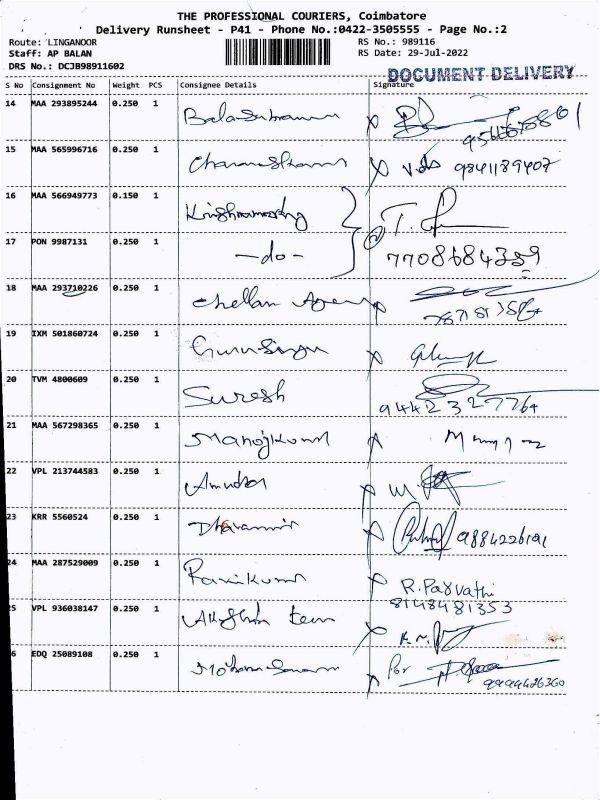 THE PROFESSIONAL COURIERS, Coimbatore
Delivery Runsheet - P41 - Phone No.:0422-3505555 - Page No.:2
Route: LINGANOOR RS No.: 989116
Staff: AP BALAN RS Date: 29-Jul-2022
DRS No.: DCJB98911602
DOCUMENT DELIVERY
S No Consignment No Weight PCS Consignee Details Signature
14 MAA 293895244 0.250 1
15 MAA 565996716 0.250 1 9841189407
16 MAA 566949773 0.150 1 Krishnamoorthy
17 PON 9987131 0.250 1 -do- 7708684359
18 MAA 293710226 0.250 1 Chellam
19 IXM 501860724 0.250 1
20 TVM 4800609 0.250 1 Suresh 9442327764
21 MAA 567298365 0.250 1 Manojkumar
22 VPL 213744583 0.250 1 Amudha
23 KRR 5560524 0.250 1 9884226191
24 MAA 287529009 0.250 1 Ravikumar R. Parvathi
8148481353
25 VPL 936038147 0.250 1
26 EDQ 25089108 0.250 1 For